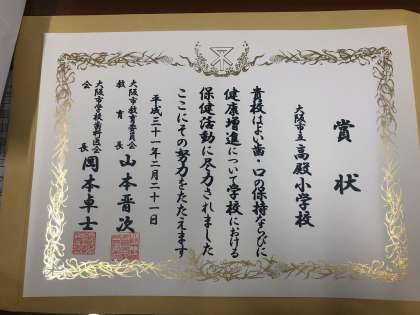 賞状
大阪市立高殿小学校
貴校はよい歯・口の保持ならびに
健康増進について学校における
保健活動に尽力されました
ここにその努力をたたえます
平成三十一年二月二十一日
大阪市教育委員会
教育長 山本晋次
大阪市学校歯科医会
会長 岡本卓士